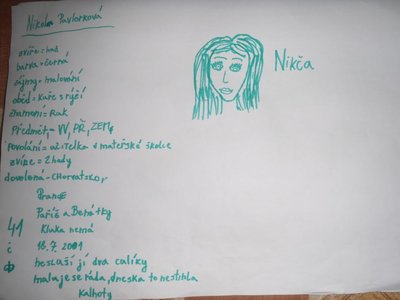 Nikola Pavlorková
Nikča
zvíře = had
barva = černá
zájmy = malování
oběd = kuře s rýží
znamení = Rak
Předmět = VV, PŘ, ZEM
povolání = učitelka v mateřské školce
zvíře = 2 hady
dovolená - CHorvatsko,
Paříž a Benátky
41 Kluka nemá
č 18.7. 2001
nesluší jí dva culíky
maluje se ráda, dneska to nestihla
kalhoty